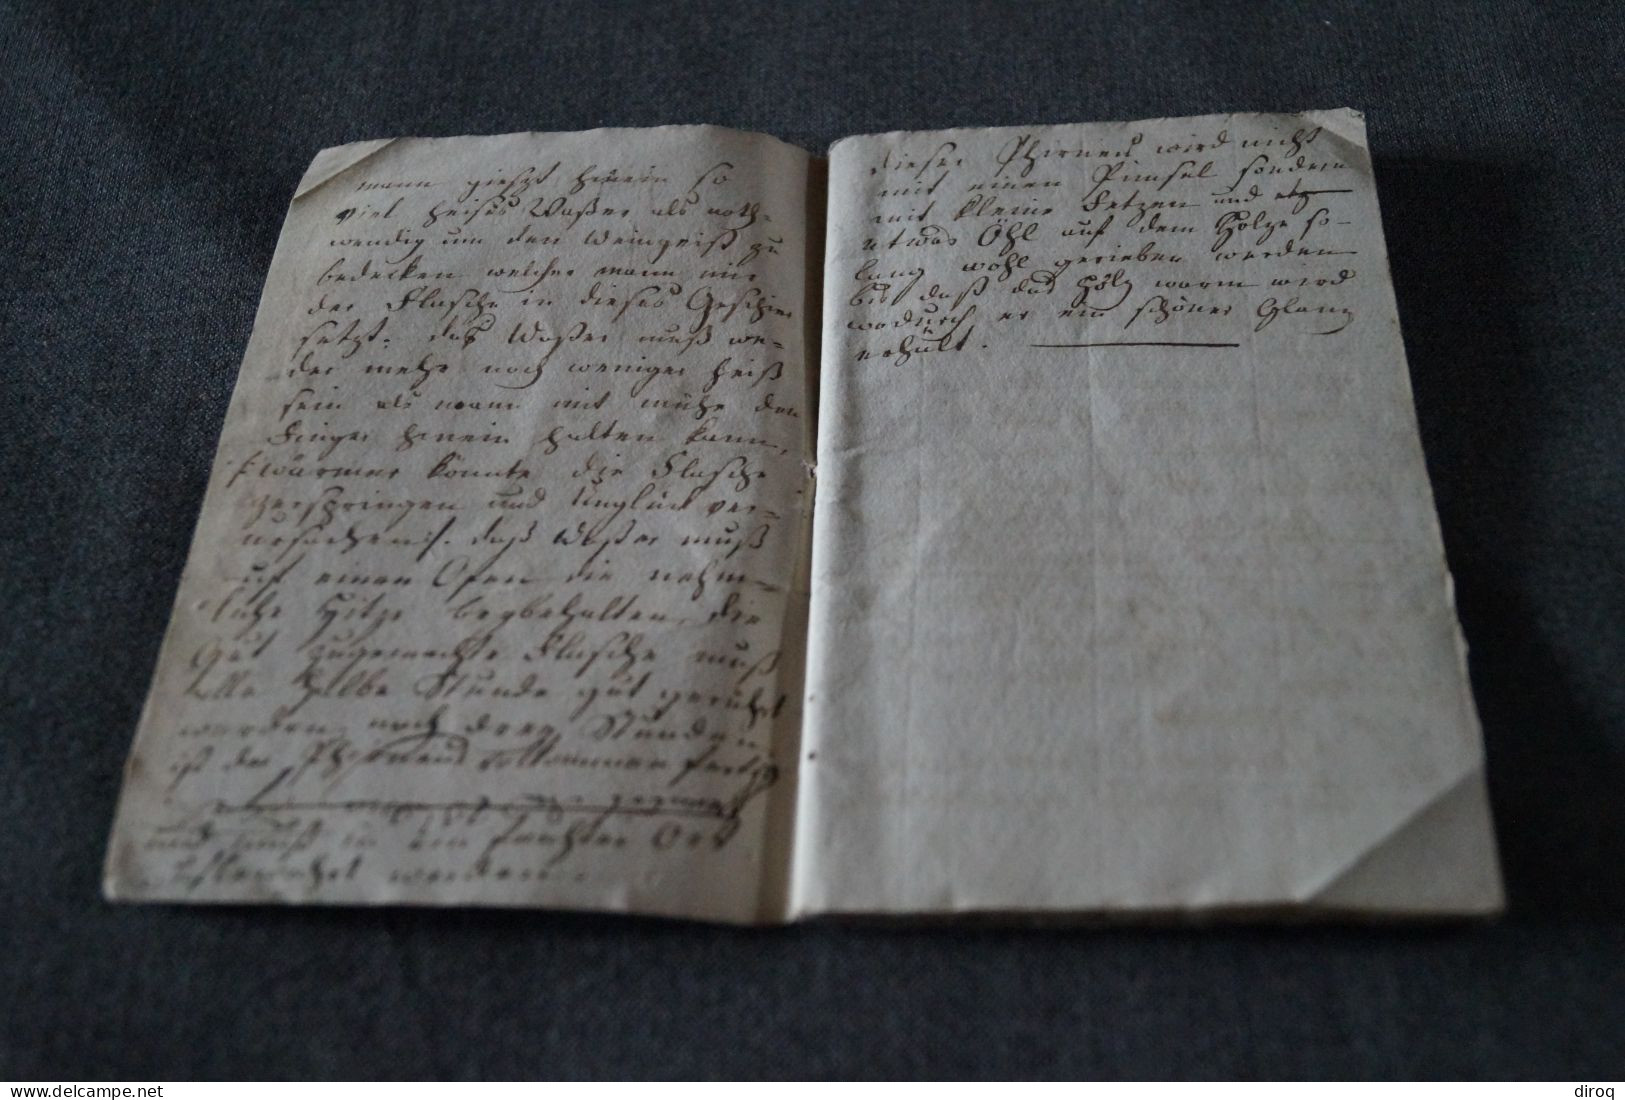 mann gießet hinein so
viel heises Waßer als noth-
wendig um den Weingeiß zu
bedecken welcher mann mit
der Flasche in dieses Geschirr
setzt. das Waßer muß we-
der mehr noch weniger heiß
sein als mann mit mühe den
Finger hinein halten kann,
wärmer könnte die Flasche
zerspringen und Unglück ver-
ursachen :/. das Waßer muß
auf einen Ofen die nehm-
liche Hitze beybehalten, die
Gut zugemachte Flasche muß
alle halbe Stunde gut gerühret
werden, nach drey Stunden
ist der vollkommen fertig
und muß in ein feuchten Ort
werden.
dieser Phirneis wird nicht
mit einen Pinsel sondern
mit kleine Fetzen und
etwas Öhl auf dem Holze so-
lang wohl gerieben werden
bis daß das Holz warm wird
wodurch er ein schöner Glanz
erhält.
delcampe.net
diroq